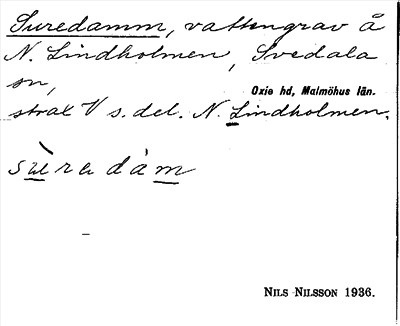 Suredamm, vattengrav Å
N. Lindholmen, Svedala
sn,
Oxie hd, Malmöhus län.
strax V s. del. N. Lindholmen.
sùradàm
Nils Nilsson 1936.